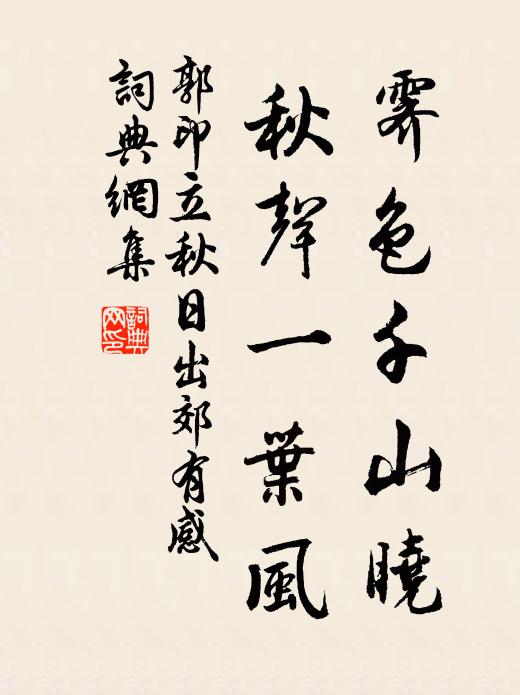 霽色千山曉
秋聲一葉風
郭印立秋日出郊有感
詞典網集
詞典网印